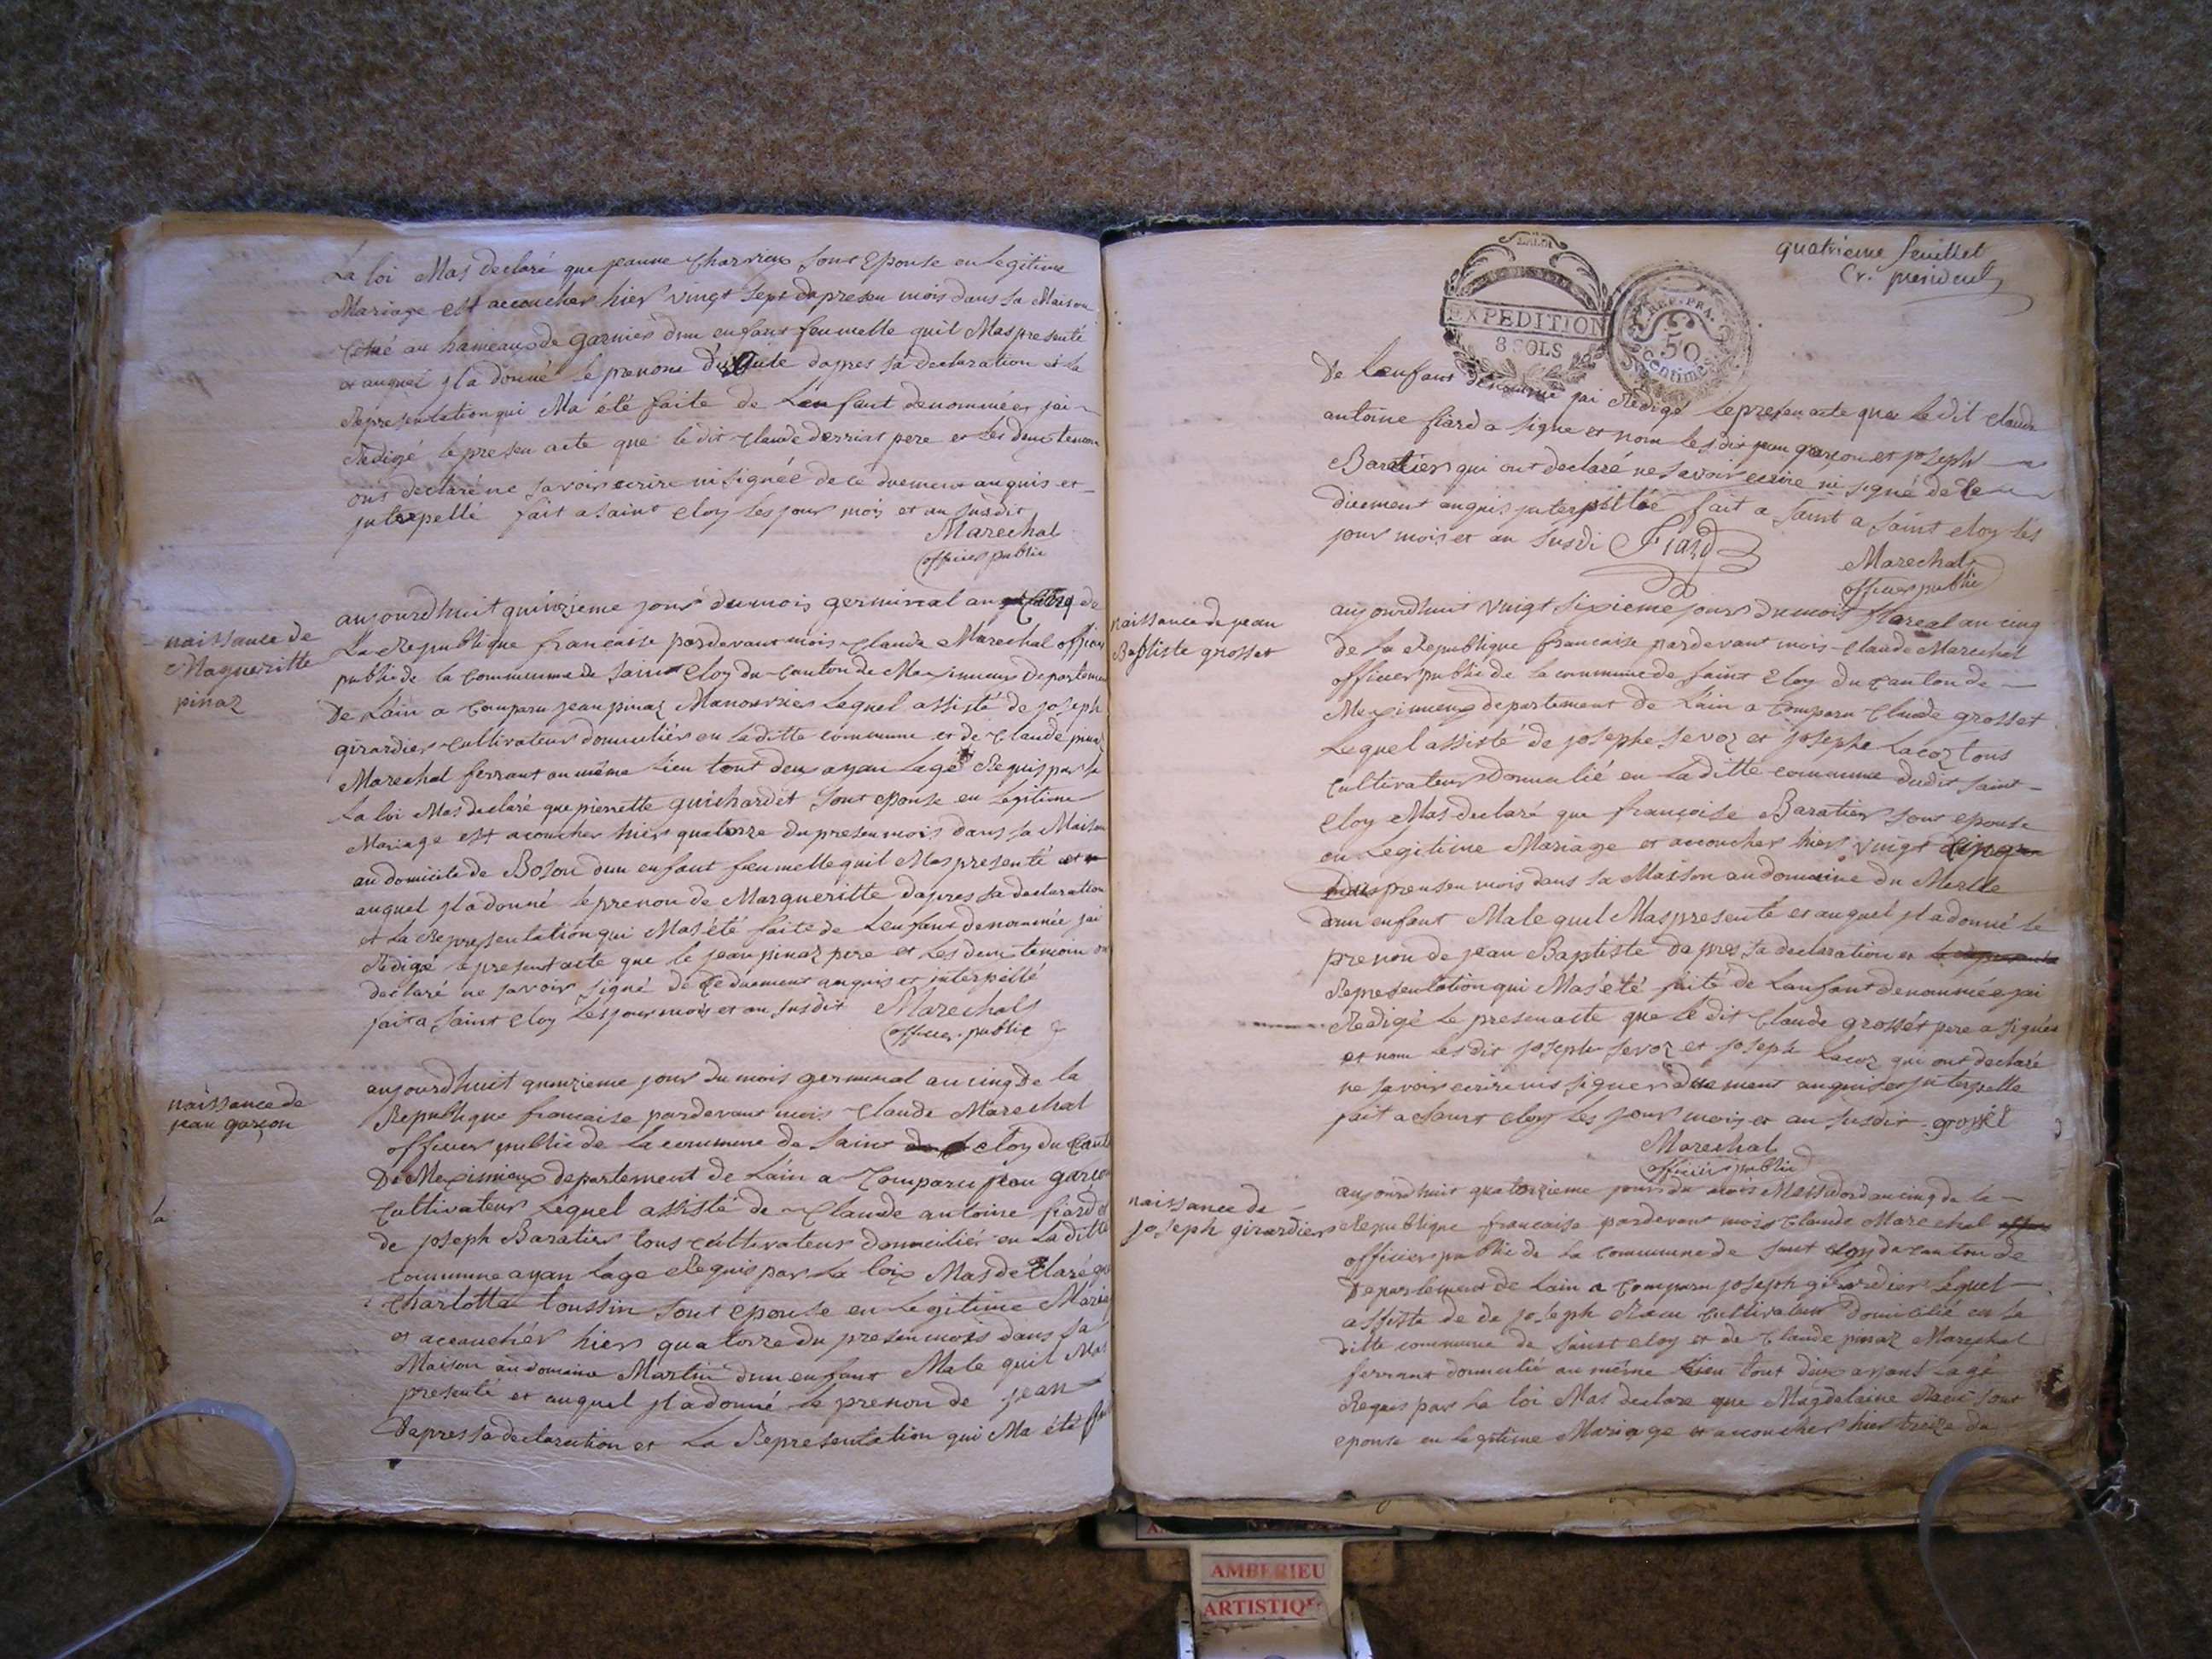 La loi Mas declaré que jeanne Charvieux sont Epouse en legitime
Mariage est accoucher hier vingt sept du presen mois dans sa Maison
au hameaux de garnier dun enfans feumelle quil Mas presenté
et auquel jl a donné le prenom dapres sa declaration et la
Representation qui Ma été faite de Lenfant denommées jai
Redigé le presen acte que le dit Claude derriat pere et les deux temoin
ons declaré ne savoir ecrire ni signée de ce duement anquis et
jnterpellé fait a saint eloy les jour mois et an susdit
Marechal
officier public
naissance de
Magueritte
pinaz
aujourdhuit quinzieme jour du mois germinal an cinq de
La Republique francaise pardevant mois Claude Marechal officier
public de la commune de saint Eloy du canton de Meximieux departemen
De Lain a comparu jean pinaz Manouvrier Lequel assisté de joseph
girardier cultivateur domicilier en laditte commune et de Claude pinaz
Marechal ferrant au même lieu tout deu ayan lage Requis par la
La loi Mas declaré que pierrette guichardet sont epouse en legitime
Mariage est acoucher hier quatorze du presen mois dans sa Maison
au domicile de Boson dun enfant feumelle quil Mas presenté et
auquel jl a donné le prenon de Margueritte dapres sa declaration
et La Representation qui Mas été faite de Lenfant denommée jai
Redigé le present acte que le jean pinaz pere et les deux temoin on
declaré ne savoir signé de ce duement anquis et interpellé
fait a saint eloy les jour mois et an susdit Marechal
officier public
naissance de
jean garçon
aujourdhuit quinzieme jour du mois germinal an cinq De la
Republique francaise pardevant mois Claude Marechal
officier public de la commune de saint eloy du Cant
De Meximieux departement de Lain a Comparu jean garçon
Cultivateur Lequel assisté de Claude antoine fiard et
de joseph Baratier tous cultivateur domicilier en Laditte
commune ayan lage Requis par La loix Mas declaré que
Charlotte toussin sont epouse en legitime Mariage
et accouchér hier quatorze du presen mois dans sa
Maison au domaine Martin dun enfant Male quil Mas
presenté et auquel jl a donné le prenon de jean
Dapres sa declaration et La Representation qui Ma été fait
la
quatrieme feuillet
EXPEDITION
8 SOLS
REP. FRA.
50
centimes
De Lenfant denommé jai Redigé le presen acte que le dit Claude
antoine fiard a signe et nom les dit jean garçon et joseph
Baratier qui ont declaré ne savoir ecrire ni signé de ce
duement anquis jnterpellée fait a saint a saint eloy les
jour mois et an susdi Fiard
Marechal
officier public
naissance de jean
Baptiste grosset
aujourdhuit vingt sixieme jour du mois floreal an cinq
de La Republique francaise pardevant mois Claude Marechal
officier public de la commune de saint Eloy du canton de
Meximieux departement de Lain a comparu Claude grosset
Lequel assisté de josephe sevoz et josephe Lacoz tous
cultivateur Domicilié en Laditte commune dudit saint
eloy Mas declaré que françoise Baratier sont epouse
en Legitime Mariage et accoucher hier vingt cinq
presen mois dans sa Maison au domaine du Merlle
dun enfant Male quil Mas presenté et auquel jl a donné le
prenon de jean Baptiste dapres sa declaration et
Representation qui Mas été faité de Lanfant denommée jai
Redigé le presen acte que le dit Claude grossét pere a signée
et nom les dit joseph sevoz et joseph Lacoz qui ont declaré
ne savoir ecrire nis signer duement anquis et jnterpelle
fait a saint eloy les jour mois et an susdit grossét
Marechal
officier public
naissance de
joseph girardier
aujourdhuit quatorzieme jour du mois Messidord an cinq de la
Republique francaise pardevant mois Claude Marechal
officier public de la commune de saint eloy du canton de
Departement de Lain a comparu joseph girardier Lequel
assiste de de joseph cultivateur domicilié en la
ditte commune de saint eloy et de Claude pinaz Marechal
ferrant domicilié au même lieu tout deux ayant lage
Requis par la loi Mas declare que Magdelaine sont
epouse en legitime Mariage et accoucher hier treize du
AMBERIEU
ARTISTIQUE